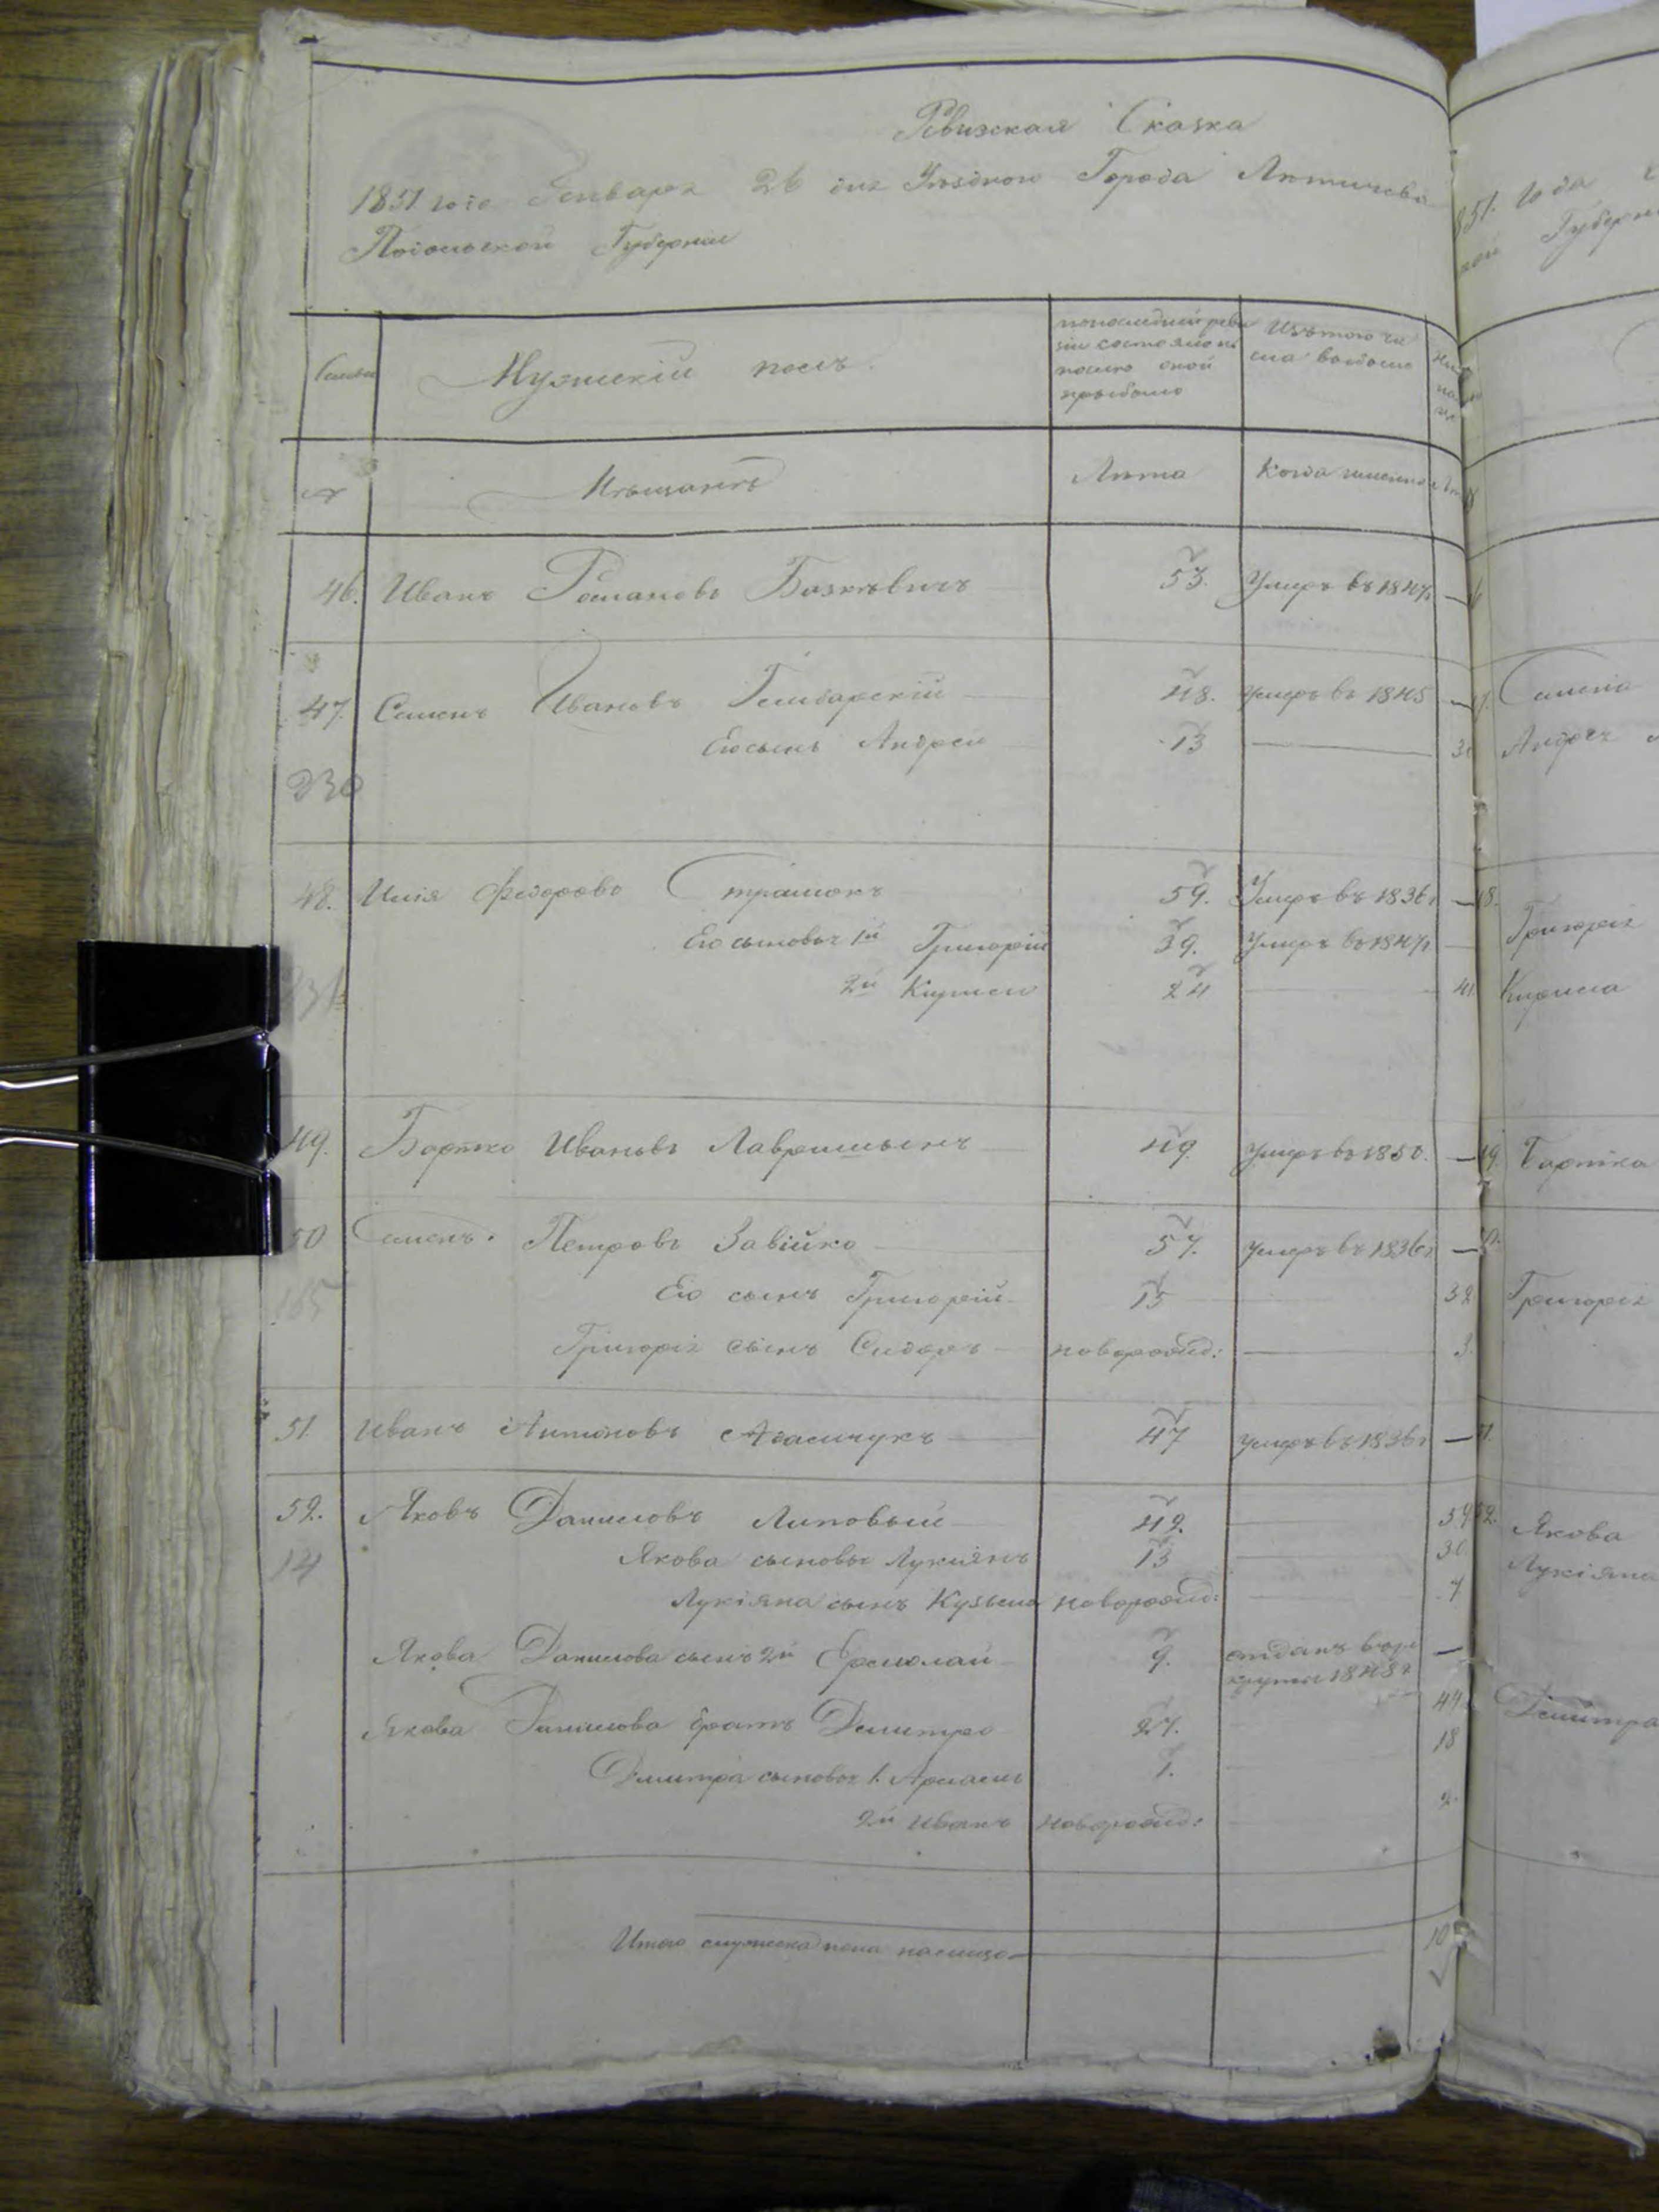 Ревизская Сказка
1851 года Генваря 26 дня Уезднаго Города Летичева
Подольской Губернии
Семьи
Мужеский полъ.
по последней реви
зіи состояло и
после оной
прибыло
Изътого чи
сла выбыло
Мещанъ
Лета
Когда именно
46. Иванъ Романовъ 53. Умеръ въ 1847г —
47. Семенъ Ивановъ 48. умеръ въ 1845 —
Его сынъ Андрей 13 — 30
230
48. Илія Федоровъ Страшокъ 59. Умеръ въ 1836г — 48.
Его сыновья 1й Григорій 39. Умеръ въ 1847г —
2й Кирило 24 — 41
49. Бартко Ивановъ Лавришынъ 49. умеръ въ 1850. — 49.
50 Семенъ Петровъ Завійко 57. умеръ въ 1836г —
Его сынъ Григорій 15 — 32
165
Григорія сынъ Сидоръ новорожд: — 3.
51. Иванъ Антоновъ Адамчукъ 47 умеръ въ 1836г —
52. Яковъ Даниловъ Липовый 42. — 59 52.
14
Якова сыновья Лукіянъ 13 — 30.
Лукіяна сынъ Кузьма новорожд: — 7
Якова Данилова сынъ 2й Ермолай 9. отданъ въ ре
круты 1848г —
Якова Данилова братъ Демитро 27. 44
Дмитра сыновья 1. 1. 18
2й Иванъ новорожд: 2.
Итого мужеска пола налицо 10
851. года
Губерн
Семена
Андрея
Григорія
Кирила
Бартка
Григорія
Якова
Лукіяна
Демитра